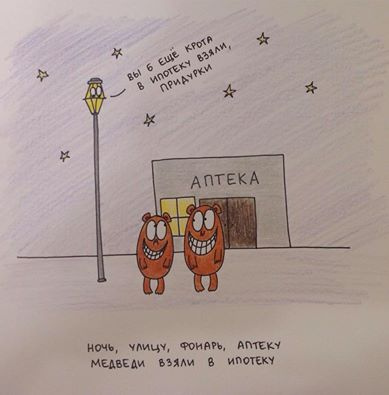 ВЫ Б ЕЩЁ КРОТА
В ИПОТЕКУ ВЗЯЛИ,
ПРИДУРКИ
АПТЕКА
НОЧЬ, УЛИЦУ, ФОНАРЬ, АПТЕКУ
МЕДВЕДИ ВЗЯЛИ В ИПОТЕКУ